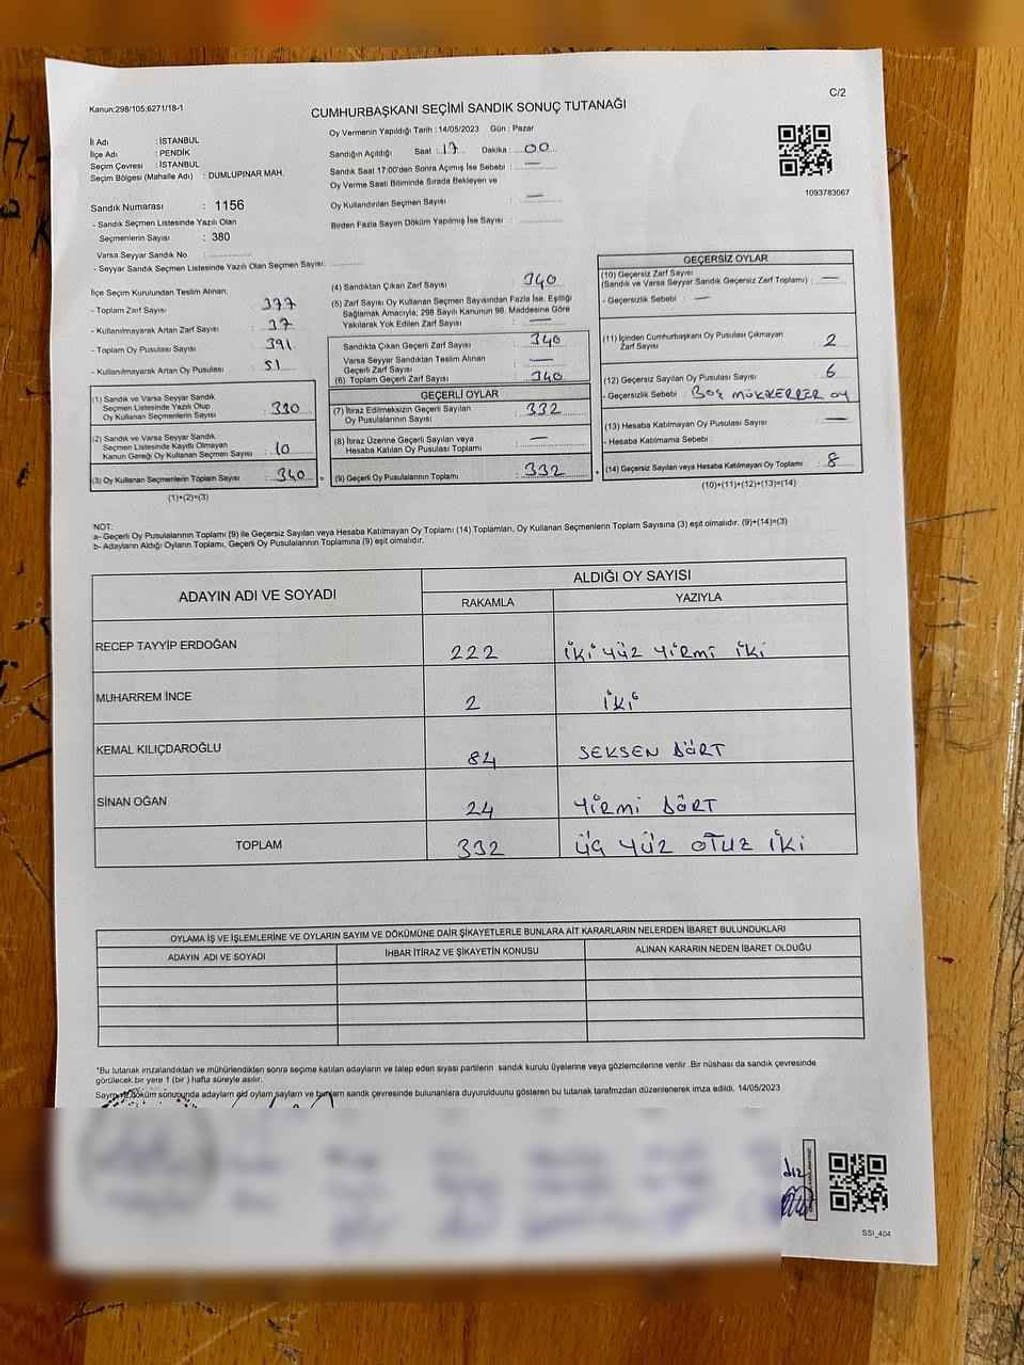 Kanun:298/105;6271/18-1
C/2
CUMHURBAŞKANI SEÇİMİ SANDIK SONUÇ TUTANAĞI
İl Adı : İSTANBUL
İlçe Adı : PENDİK
Seçim Çevresi : İSTANBUL
Seçim Bölgesi (Mahalle Adı) : DUMLUPINAR MAH.
Sandık Numarası : 1156
- Sandık Seçmen Listesinde Yazılı Olan
Seçmenlerin Sayısı : 380
Varsa Seyyar Sandık No
- Seyyar Sandık Seçmen Listesinde Yazılı Olan Seçmen Sayısı:
Oy Vermenin Yapıldığı Tarih : 14/05/2023 Gün : Pazar
Sandığın Açıldığı Saat : 17 Dakika : 00
Sandık Saat 17:00'den Sonra Açılmış İse Sebebi : —
Oy Verme Saati Bitiminde Sırada Bekleyen ve
Oy Kullandırılan Seçmen Sayısı : —
Birden Fazla Sayım Döküm Yapılmış İse Sayısı :
1093783067
İlçe Seçim Kurulundan Teslim Alınan;
- Toplam Zarf Sayısı : 377
- Kullanılmayarak Artan Zarf Sayısı : 37
- Toplam Oy Pusulası Sayısı : 391
- Kullanılmayarak Artan Oy Pusulası : 51
(1) Sandık ve Varsa Seyyar Sandık
Seçmen Listesinde Yazılı Olup
Oy Kullanan Seçmenlerin Sayısı : 330
(2) Sandık ve Varsa Seyyar Sandık
Seçmen Listesinde Kayıtlı Olmayan
Kanun Gereği Oy Kullanan Seçmen Sayısı : 10
(3) Oy Kullanan Seçmenlerin Toplam Sayısı : 340
(1)+(2)=(3)
(4) Sandıktan Çıkan Zarf Sayısı : 340
(5) Zarf Sayısı Oy Kullanan Seçmen Sayısından Fazla İse, Eşitliği
Sağlamak Amacıyla; 298 Sayılı Kanunun 98. Maddesine Göre
Yakılarak Yok Edilen Zarf Sayısı : —
Sandıkta Çıkan Geçerli Zarf Sayısı : 340
Varsa Seyyar Sandıktan Teslim Alınan
Geçerli Zarf Sayısı : —
(6) Toplam Geçerli Zarf Sayısı : 340
GEÇERLİ OYLAR
(7) İtiraz Edilmeksizin Geçerli Sayılan
Oy Pusulalarının Sayısı : 332
(8) İtiraz Üzerine Geçerli Sayılan veya
Hesaba Katılan Oy Pusulası Toplamı : —
(9) Geçerli Oy Pusulalarının Toplamı : 332
GEÇERSİZ OYLAR
(10) Geçersiz Zarf Sayısı
(Sandık ve Varsa Seyyar Sandık Geçersiz Zarf Toplamı) : —
- Geçersizlik Sebebi : —
(11) İçinden Cumhurbaşkanı Oy Pusulası Çıkmayan
Zarf Sayısı : 2
(12) Geçersiz Sayılan Oy Pusulası Sayısı : 6
- Geçersizlik Sebebi : BOŞ MÜKERRER OY
(13) Hesaba Katılmayan Oy Pusulası Sayısı : —
- Hesaba Katılmama Sebebi :
(14) Geçersiz Sayılan veya Hesaba Katılmayan Oy Toplamı : 8
(10)+(11)+(12)+(13)=(14)
NOT:
a- Geçerli Oy Pusulalarının Toplamı (9) ile Geçersiz Sayılan veya Hesaba Katılmayan Oy Toplamı (14) Toplamları, Oy Kullanan Seçmenlerin Toplam Sayısına (3) eşit olmalıdır. (9)+(14)=(3)
b- Adayların Aldığı Oyların Toplamı, Geçerli Oy Pusulalarının Toplamına (9) eşit olmalıdır.
ADAYIN ADI VE SOYADI
ALDIĞI OY SAYISI
RAKAMLA YAZIYLA
RECEP TAYYİP ERDOĞAN 222 İKİ YÜZ YİRMİ İKİ
MUHARREM İNCE 2 İKİ
KEMAL KILIÇDAROĞLU 84 SEKSEN DÖRT
SİNAN OĞAN 24 YİRMİ DÖRT
TOPLAM 332 ÜÇ YÜZ OTUZ İKİ
OYLAMA İŞ VE İŞLEMLERİNE VE OYLARIN SAYIM VE DÖKÜMÜNE DAİR ŞİKAYETLERLE BUNLARA AİT KARARLARIN NELERDEN İBARET BULUNDUKLARI
ADAYIN ADI VE SOYADI İHBAR İTİRAZ VE ŞİKAYETİN KONUSU ALINAN KARARIN NEDEN İBARET OLDUĞU
*Bu tutanak imzalandıktan ve mühürlendikten sonra seçime katılan adayların ve talep eden siyasi partilerin sandık kurulu üyelerine veya gözlemcilerine verilir. Bir nüshası da sandık çevresinde
görülecek bir yere 1 (bir) hafta süreyle asılır.
döküm sonucunda adayların aldığı oyların sayıları ve bunların sandık çevresinde bulunanlara duyurulduğunu gösteren bu tutanak tarafımızdan düzenlenerek imza edildi. 14/05/2023
SSI_404